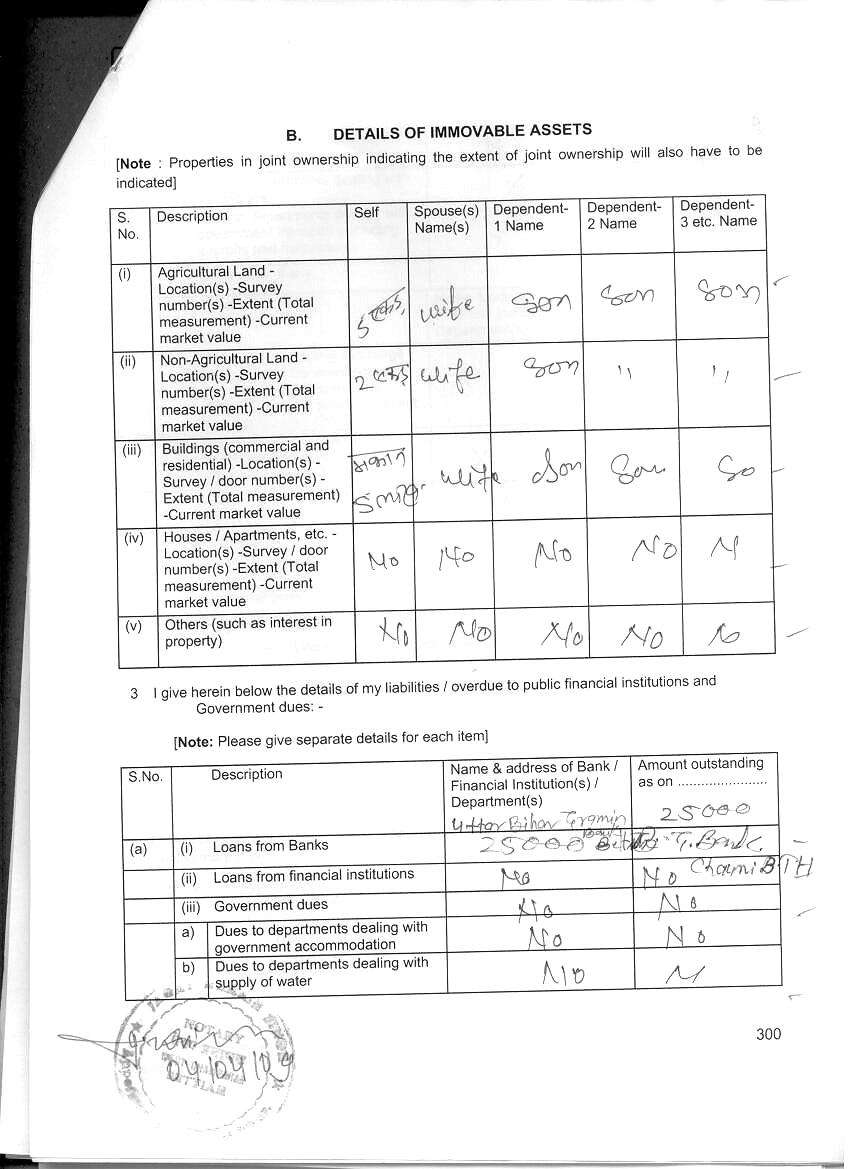 B. DETAILS OF IMMOVABLE ASSETS
[Note : Properties in joint ownership indicating the extent of joint ownership will also have to be
indicated]
S. No. Description Self Spouse(s) Name(s) Dependent-1 Name Dependent-2 Name Dependent-3 etc. Name
(i) Agricultural Land -
Location(s) -Survey
number(s) -Extent (Total
measurement) -Current
market value
5 wife Son Son Son
(ii) Non-Agricultural Land -
Location(s) -Survey
number(s) -Extent (Total
measurement) -Current
market value
2 wife Son " "
(iii) Buildings (commercial and
residential) -Location(s) -
Survey / door number(s) -
Extent (Total measurement)
-Current market value
मकान wife Son Son So
(iv) Houses / Apartments, etc. -
Location(s) -Survey / door
number(s) -Extent (Total
measurement) -Current
market value
No No No No N
(v) Others (such as interest in
property)
No No No No No
3 I give herein below the details of my liabilities / overdue to public financial institutions and
Government dues: -
[Note: Please give separate details for each item]
S.No. Description
Name & address of Bank /
Financial Institution(s) /
Department(s)
Uttar Bihar Gramin
Amount outstanding
as on .......................
25000
(a) (i) Loans from Banks 25000 G. Bank
(ii) Loans from financial institutions No No
(iii) Government dues No No
a) Dues to departments dealing with
government accommodation
No No
b) Dues to departments dealing with
supply of water
No N
NOTARY
04/04/09
300